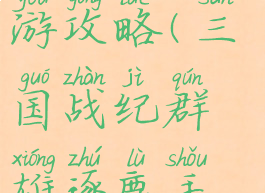 游攻略(三
guó zhàn jì qún
国战纪群
xióng zhú lù shǒu
雄逐鹿手